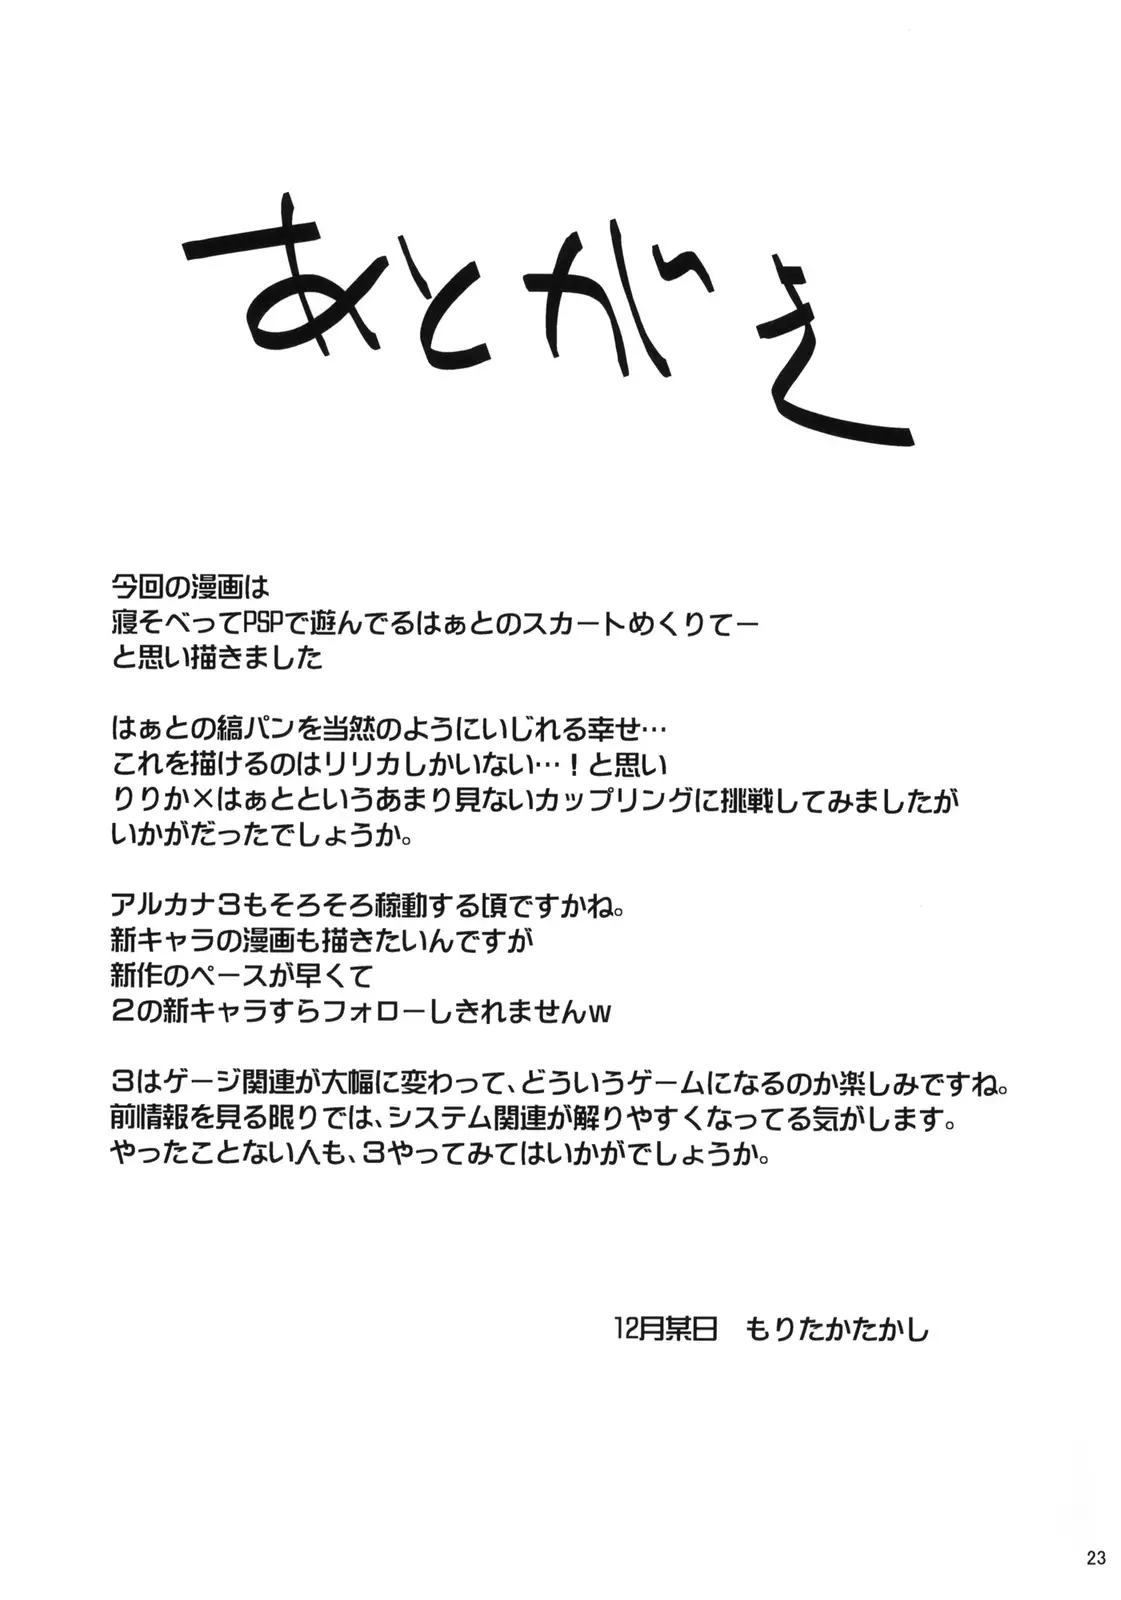 あとがき
今回の漫画は
寝そべってPSPで遊んでるはぁとのスカートめくりてー
と思い描きました
はぁとの縞パンを当然のようにいじれる幸せ…
これを描けるのはリリカしかいない…！と思い
りりか×はぁとというあまり見ないカップリングに挑戦してみましたが
いかがだったでしょうか。
アルカナ３もそろそろ稼動する頃ですかね。
新キャラの漫画も描きたいんですが
新作のペースが早くて
２の新キャラすらフォローしきれませんｗ
３はゲージ関連が大幅に変わって、どういうゲームになるのか楽しみですね。
前情報を見る限りでは、システム関連が解りやすくなってる気がします。
やったことない人も、３やってみてはいかがでしょうか。
12月某日　もりたかたかし
23